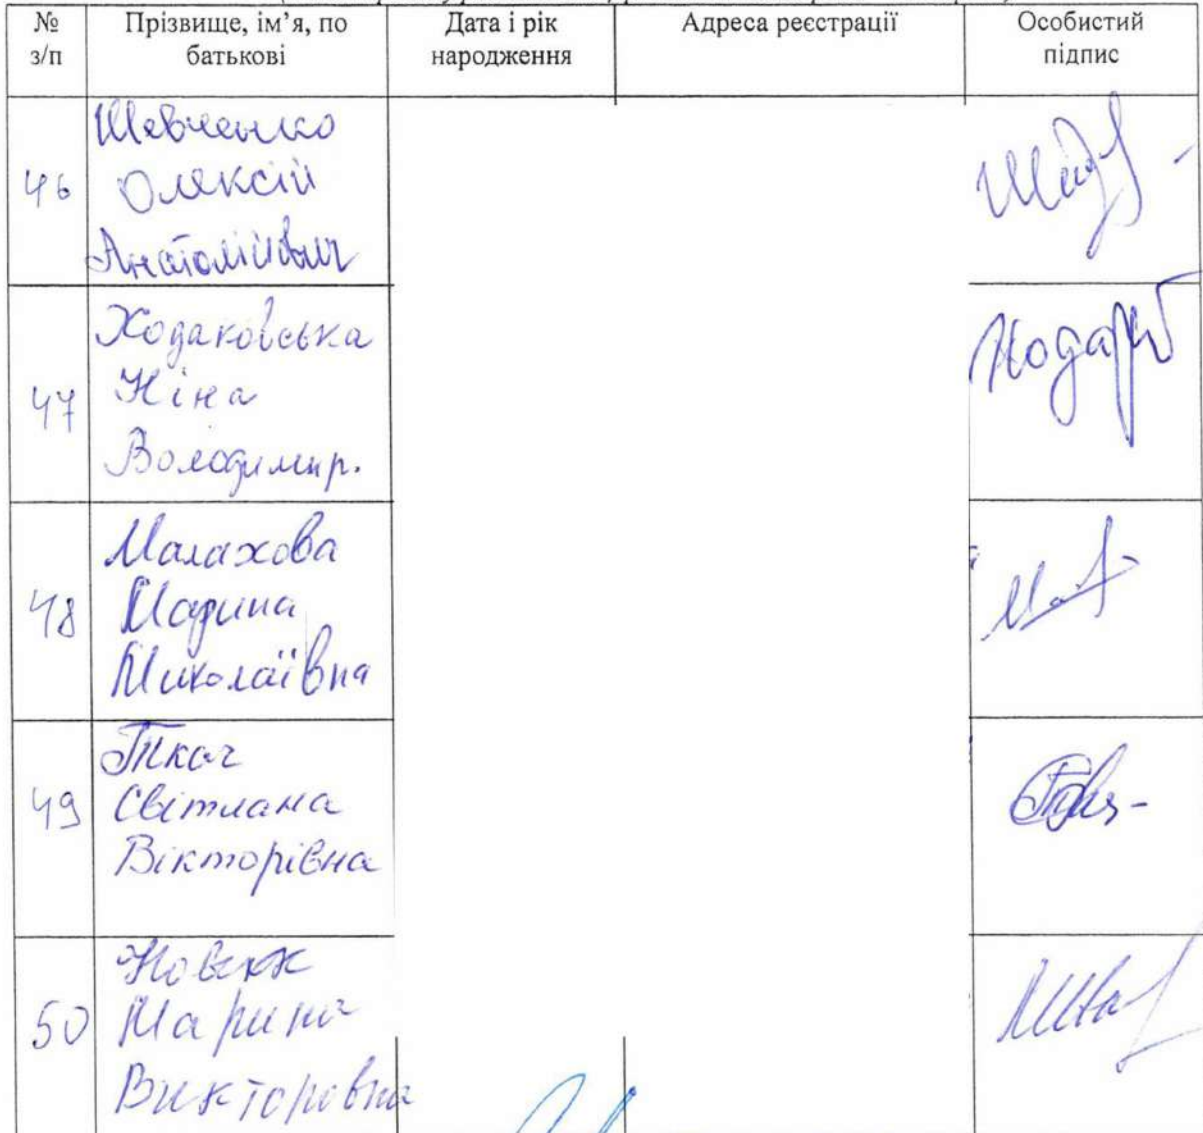 № з/п Прізвище, ім’я, по батькові Дата і рік народження Адреса реєстрації Особистий підпис
46 Шевченко
Олексій
Анатолійович
47 Ходаковська
Ніна
Володимир.
48 Малахова
Марина
Миколаївна
49 Ткач
Світлана
Вікторівна
50
Марина
Викторовна